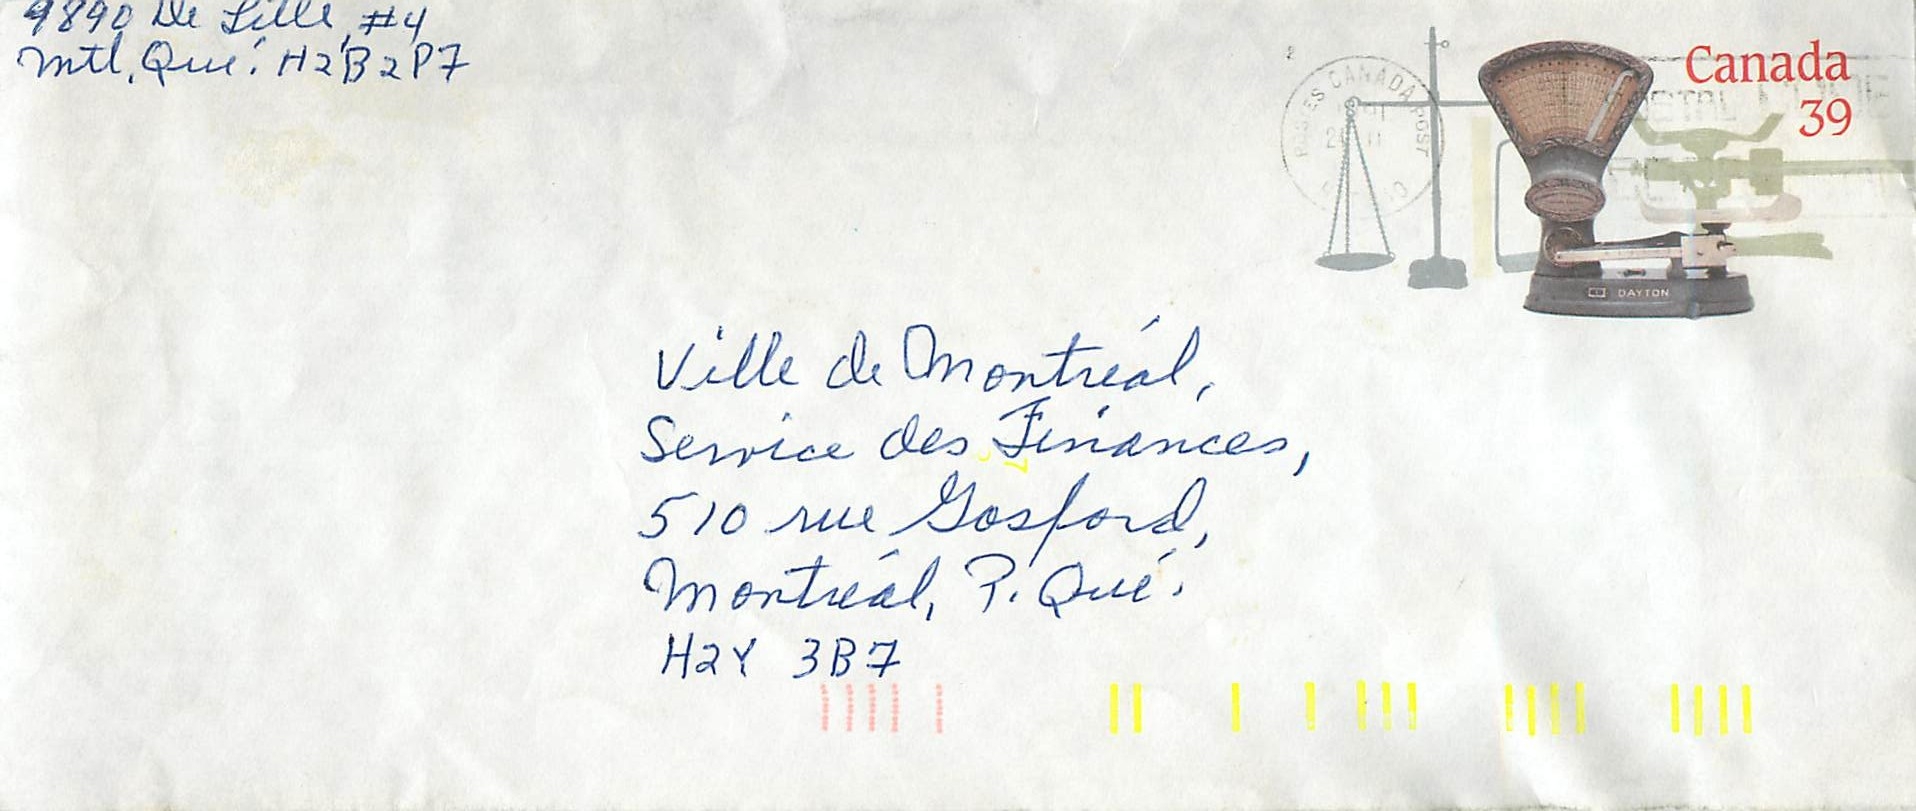 9890 De Lille, #4
Mtl, Qué. H2B2P7
Canada
39
POSTES CANADA POST
POSTAL CODE
DAYTON
Ville de Montréal,
Service des Finances,
510 rue Gosford,
Montréal, P. Qué.
H2Y 3B7